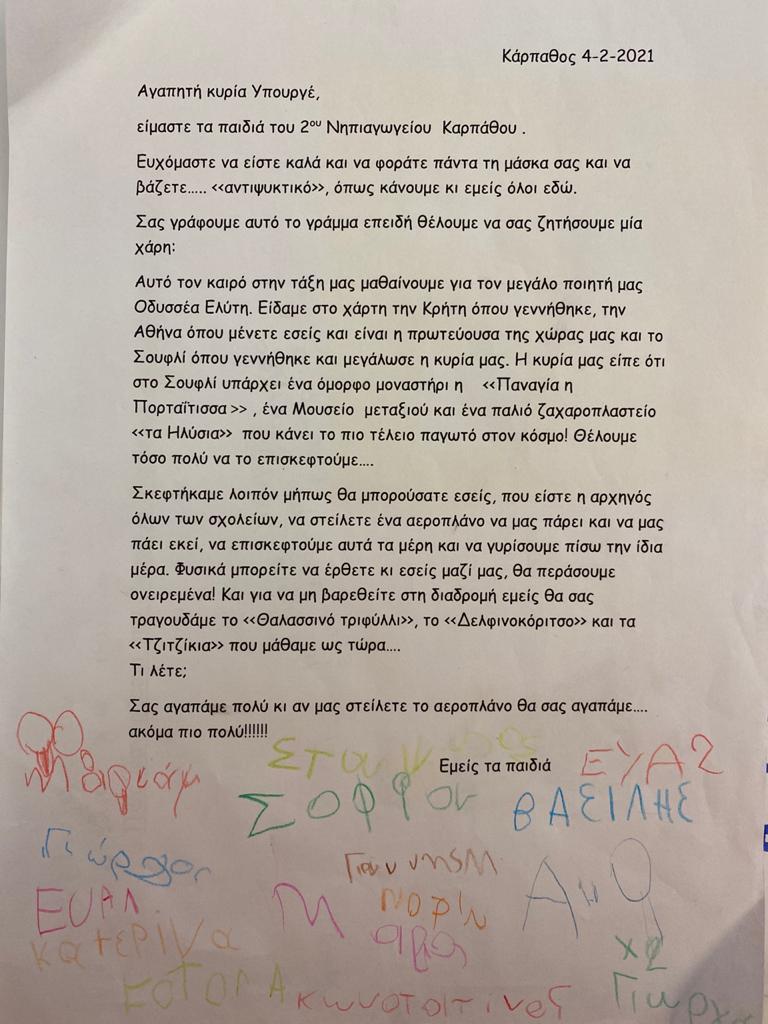 Κάρπαθος 4-2-2021
Αγαπητή κυρία Υπουργέ,
είμαστε τα παιδιά του 2ου Νηπιαγωγείου Καρπάθου .
Ευχόμαστε να είστε καλά και να φοράτε πάντα τη μάσκα σας και να
βάζετε….. <<αντιψυκτικό>>, όπως κάνουμε κι εμείς όλοι εδώ.
Σας γράφουμε αυτό το γράμμα επειδή θέλουμε να σας ζητήσουμε μία
χάρη:
Αυτό τον καιρό στην τάξη μας μαθαίνουμε για τον μεγάλο ποιητή μας
Οδυσσέα Ελύτη. Είδαμε στο χάρτη την Κρήτη όπου γεννήθηκε, την
Αθήνα όπου μένετε εσείς και είναι η πρωτεύουσα της χώρας μας και το
Σουφλί όπου γεννήθηκε και μεγάλωσε η κυρία μας. Η κυρία μας είπε ότι
στο Σουφλί υπάρχει ένα όμορφο μοναστήρι η <<Παναγία η
Πορταΐτισσα>> , ένα Μουσείο μεταξιού και ένα παλιό ζαχαροπλαστείο
<<τα Ηλύσια>> που κάνει το πιο τέλειο παγωτό στον κόσμο! Θέλουμε
τόσο πολύ να το επισκεφτούμε….
Σκεφτήκαμε λοιπόν μήπως θα μπορούσατε εσείς, που είστε η αρχηγός
όλων των σχολείων, να στείλετε ένα αεροπλάνο να μας πάρει και να μας
πάει εκεί, να επισκεφτούμε αυτά τα μέρη και να γυρίσουμε πίσω την ίδια
μέρα. Φυσικά μπορείτε να έρθετε κι εσείς μαζί μας, θα περάσουμε
ονειρεμένα! Και για να μη βαρεθείτε στη διαδρομή εμείς θα σας
τραγουδάμε το <<Θαλασσινό τριφύλλι>>, το <<Δελφινοκόριτσο>> και τα
<<Τζιτζίκια>> που μάθαμε ως τώρα….
Τι λέτε;
Σας αγαπάμε πολύ κι αν μας στείλετε το αεροπλάνο θα σας αγαπάμε….
ακόμα πιο πολύ!!!!!!
Εμείς τα παιδιά
ΒΑΣΙΛΗΣ
Γιώργος
ΚΑΤΕΡΙΝΑ